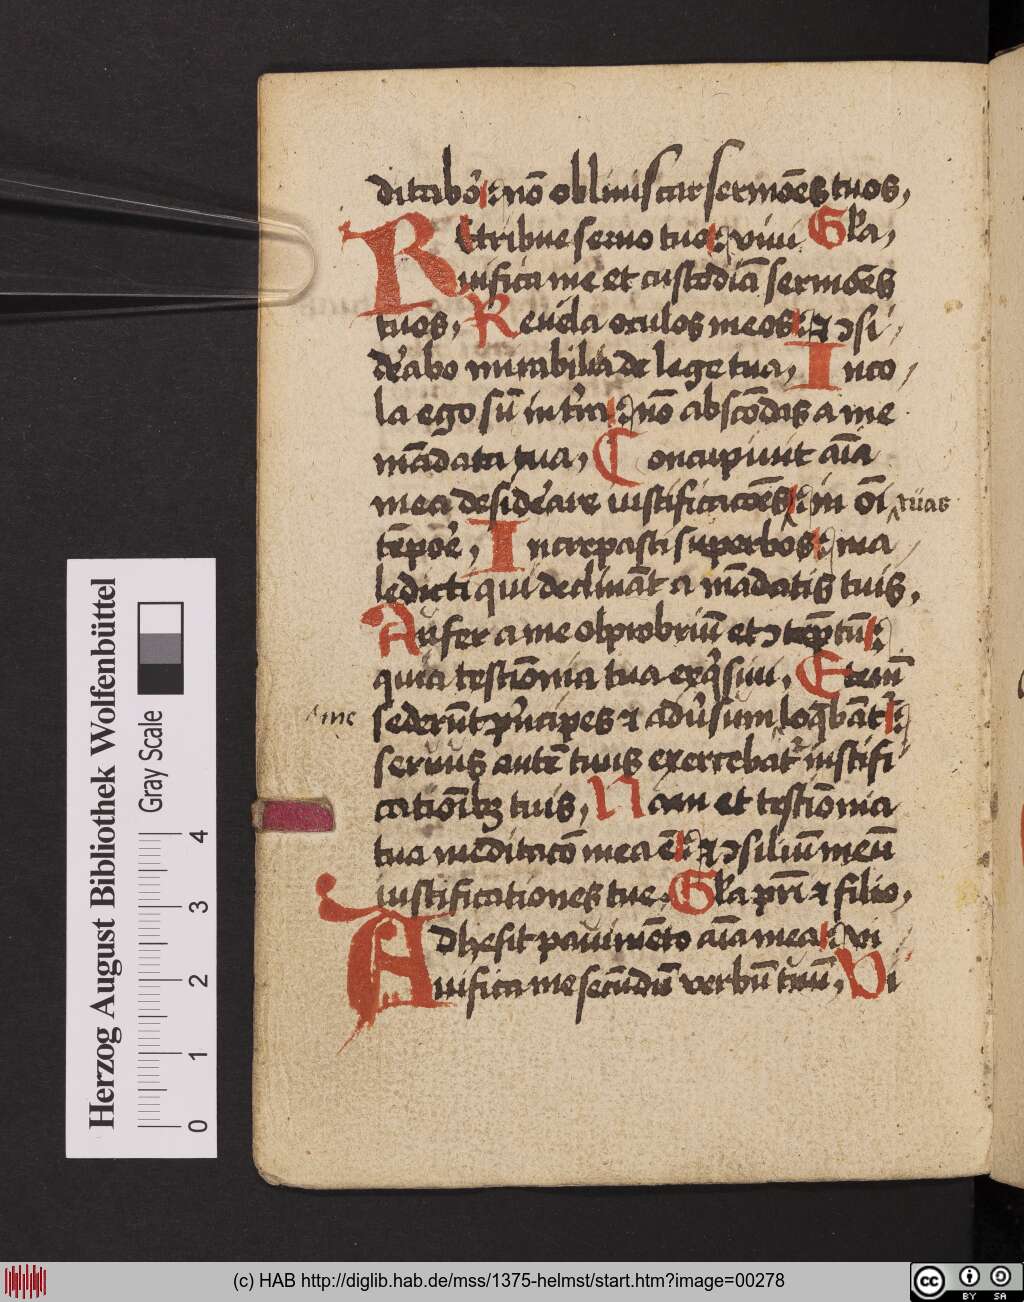 ditabor᷑ : nō obliuiscar sermōes tuos,
Retribue seruo tuo : viui Gl'a,
uifica me et custodiā sermōes
tuos, Reuela oculos meos : ⁊ ↄsi
d'eabo mirabilia de lege tua, Inco
la ego sū in t'ra : nō abscōdas a me
mādata tua, Concupiuit aīa
mea desid'are iustificacōes : in oī tuas
tēpo'e, Increpasti superbos : ma
ledicti qui declināt a mādatis tuis,
Aufer a me obprobriū et ↄtēptū :
quia testīonia tua exq'siui, Etenī
sederūt p'ncipes ⁊ adu'sum loq̄bāt' : me
seruus autē tuus exercebat' iustifi
cationībꝫ tuis, Nam et testīonia
tua meditacō mea ē : ⁊ ↄsiliū meū
iustificationes tue, Gl'a pr̄i ⁊ filio,
Adhesit pauimēto aīa mea : vi
uifica me secūdū verbū tuū, Vi
Herzog August Bibliothek Wolfenbüttel
Gray Scale
0 1 2 3 4
(c) HAB http://diglib.hab.de/mss/1375-helmst/start.htm?image=00278
cc BY SA